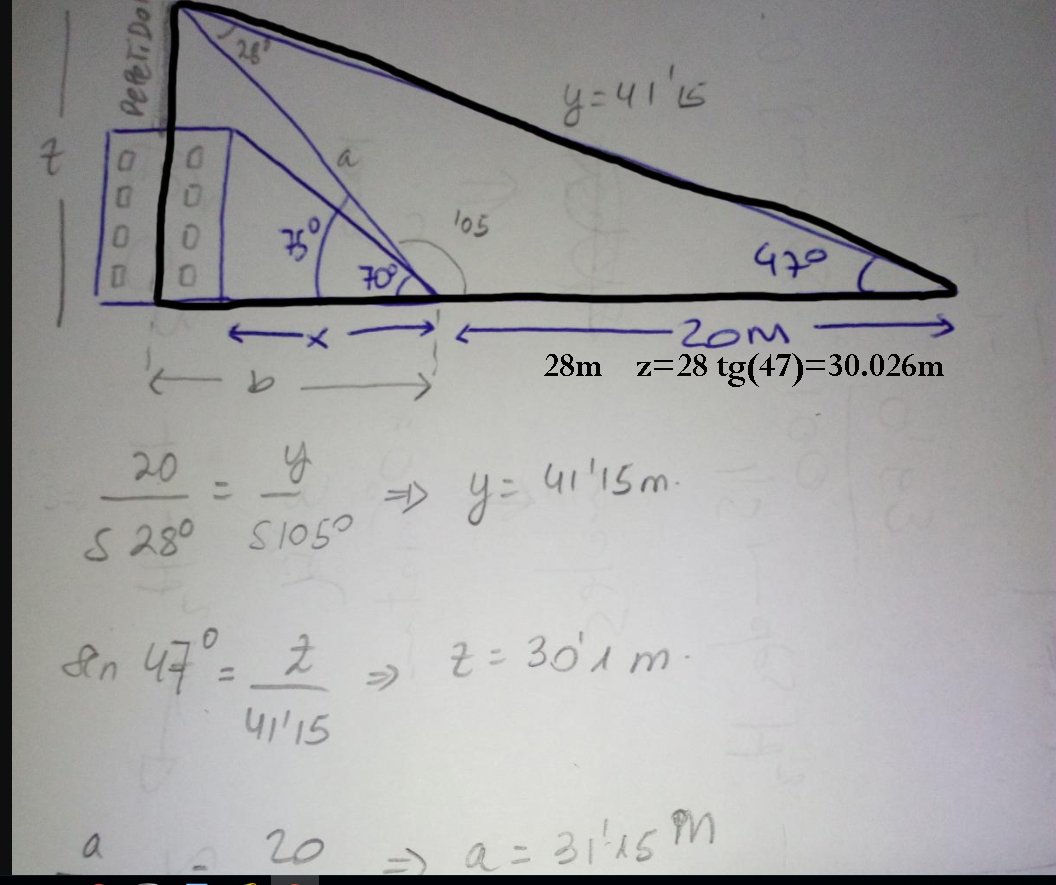 REPETIDOR
28°
y = 41'15
z
a
105
75°
70°
47°
x
20M
28m z=28 tg(47)=30.026m
b
20 / S 28° = y / S105° ⇒ y = 41'15 m.
sen 47° = z / 41'15 ⇒ z = 30'1 m.
a = 20 ⇒ a = 31'15 M